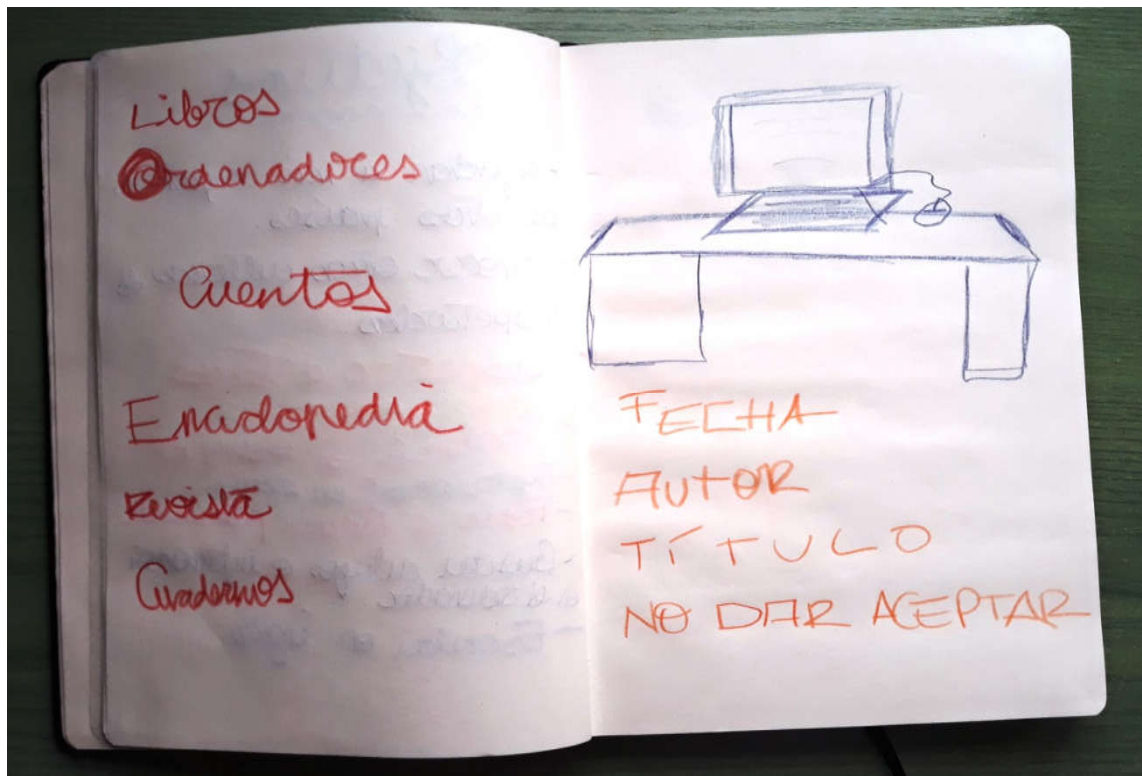 Libros
Ordenadores
Cuentos
Enciclopedia
Revista
Cuadernos
FECHA
AUTOR
TÍTULO
NO DAR ACEPTAR